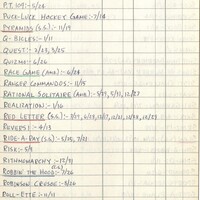 P.T. 109:- 5/26
PUCK-LUCK HOCKEY GAME:- 7/18
PYRAMIDS (S.G.):- 11/19
Q-BICLES:- 1/11
QUEST:- 2/23, 3/25
QUIZMO:- 6/26
RACE GAME (AND):- 6/24
RANGER COMMANDOS:- 11/15
RATIONAL SOLITAIRE (AND):- 5/19, 5/13, 12/27
REALIZATION:- 1/16
RED LETTER (S.G.):-
REVERSI:- 4/13
RIDE-A-RAY (S.G.):- 5/20, 7/21
RISK:- 5/9
RITHMOMACHY:- 12/31
ROBBIN' THE HOOD:- 7/26
ROBINSON CRUSOE:- 3/24
ROLL-ETTE:- 11/11